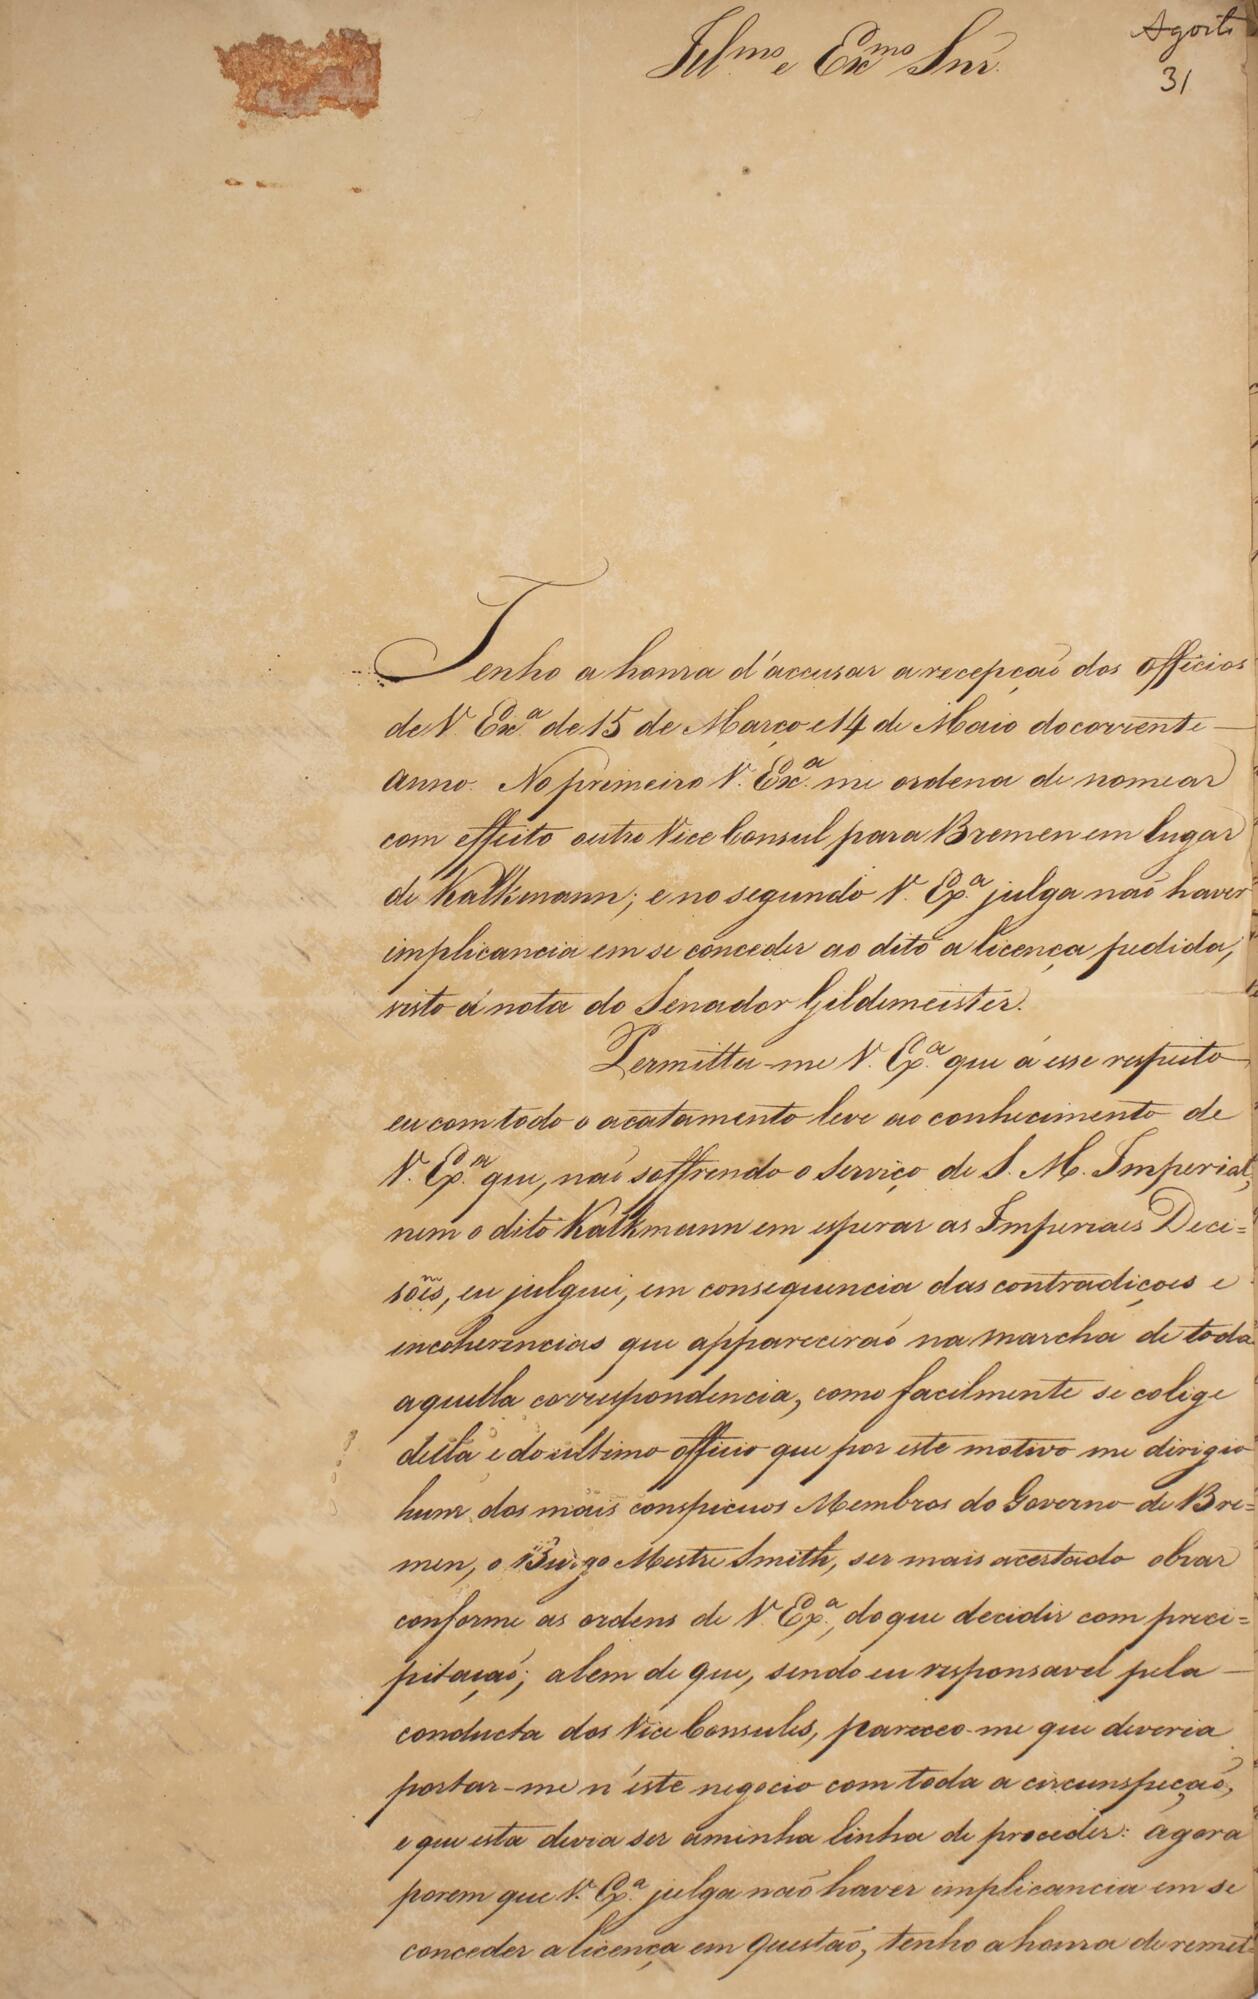 Agosto
31
Illmo e Exmo Snr.
Tenho a honra d'accusar a recepçaõ dos officios
de V. Exa. de 15 de Março e 14 de Maio do corrente —
anno. No primeiro V. Exa. me ordena de nomear
com effeito outro Vice Consul para Bremen em lugar
de Kalkmann; e no segundo V. Exa. julga naõ haver
implicancia em se conceder ao dito a licença pedida,
visto á nota do Senador Gildemeister.
Permitta-me V. Exa. que á esse respeito
eu com todo o acatamento leve ao conhecimento de
V. Exa. que, naõ soffrendo o Serviço de S. M. Imperial,
nem o dito Kalkmann em esperar as Imperiaes Deci=
sões, eu julguei, em consequencia das contradiçoes e
incoherencias que appareceraõ na marcha de toda
aquella correspondencia, como facilmente se colige
della e do ultimo officio que por este motivo me dirigio
hum dos mais conspicuos Membros do Governo de Bre=
men, o Burgo Mestre Smith, ser mais acertado obrar
conforme as ordens de V. Exa., do que decidir com preci=
pitaçaõ; alem de que, sendo eu responsavel pela —
conducta dos Vice Consules, pareceo-me que deveria
portar-me n'este negocio com toda a circunspeçaõ,
e que esta devia ser a minha linha de proceder: agora
porem que V. Exa. julga naõ haver implicancia em se
conceder a licença em questaõ, tenho a honra de remet-